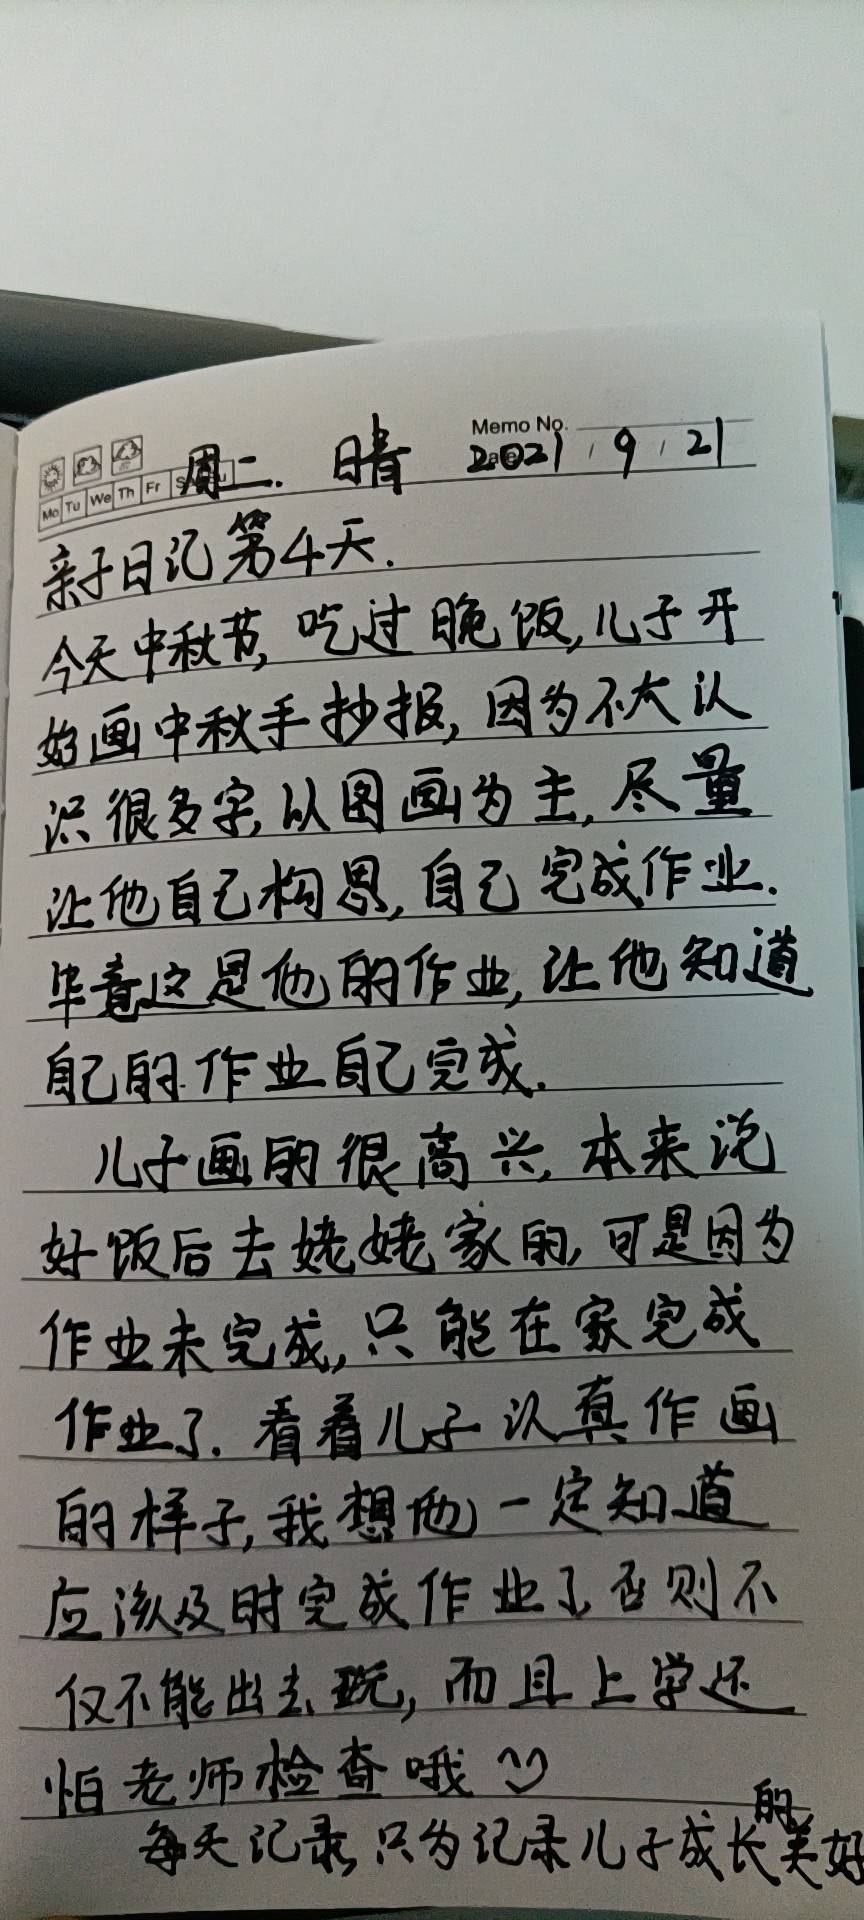 Memo No.
Mo Tu We Th Fr
周二. 晴 2021 9 21
亲子日记第4天.
今天中秋节, 吃过晚饭,儿子开
始画中秋手抄报, 因为不太认
识很多字, 以图画为主, 尽量
让他自己构思, 自己完成作业.
毕竟这是他的作业, 让他知道
自己的作业自己完成.
儿子画的很高兴, 本来说
好饭后去姥姥家的, 可是因为
作业未完成, 只能在家完成
作业了. 看着儿子认真作画
的样子, 我想他一定知道
应该及时完成作业了, 否则不
仅不能出去玩, 而且上学还
怕老师检查哦
每天记录, 只为记录儿子成长的美好